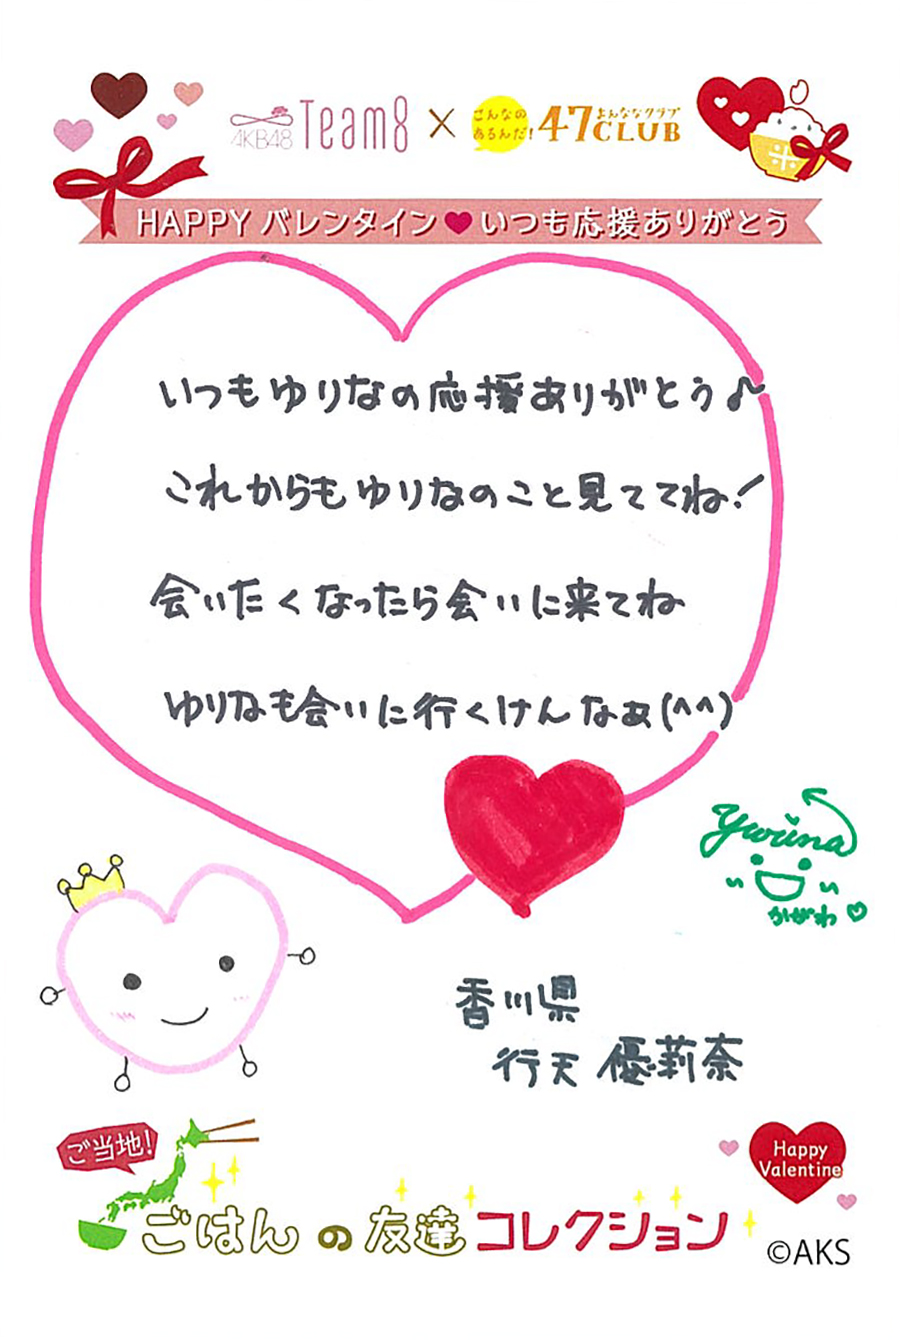 AKB48 Team8 × こんなの あるんだ! 47CLUB よんななクラブ
HAPPY バレンタイン♥いつも応援ありがとう
いつもゆりなの応援ありがとう♪
これからもゆりなのこと見ててね!
会いたくなったら会いに来てね
ゆりなも会いに行くけんなぁ(^^)
Yurina
かがわ♡
香川県
行天 優莉奈
ご当地!
Happy
Valentine
ごはんの友達コレクション
©AKS